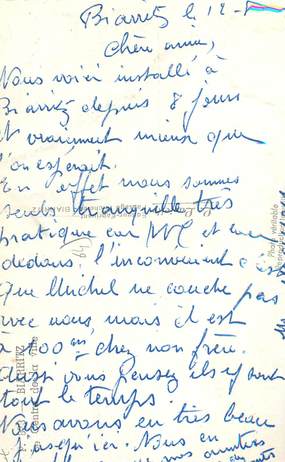 Biarritz le 12-
Chère amie,
Nous voici installé à
Biarritz depuis 8 jours
et vraiment mieux que
l'on espérait.
En effet nous sommes
seuls tranquille très
pratique car WC et eau
dedans. l'inconvenient c'est
que Michel ne couche pas
avec nous, mais il est
à 100m chez mon frère.
Aussi vous pensez ils y sont
tout le temps.
Nous avons eu très beau
jusqu'ici. Nous en
BIARRITZ
Photo véritable